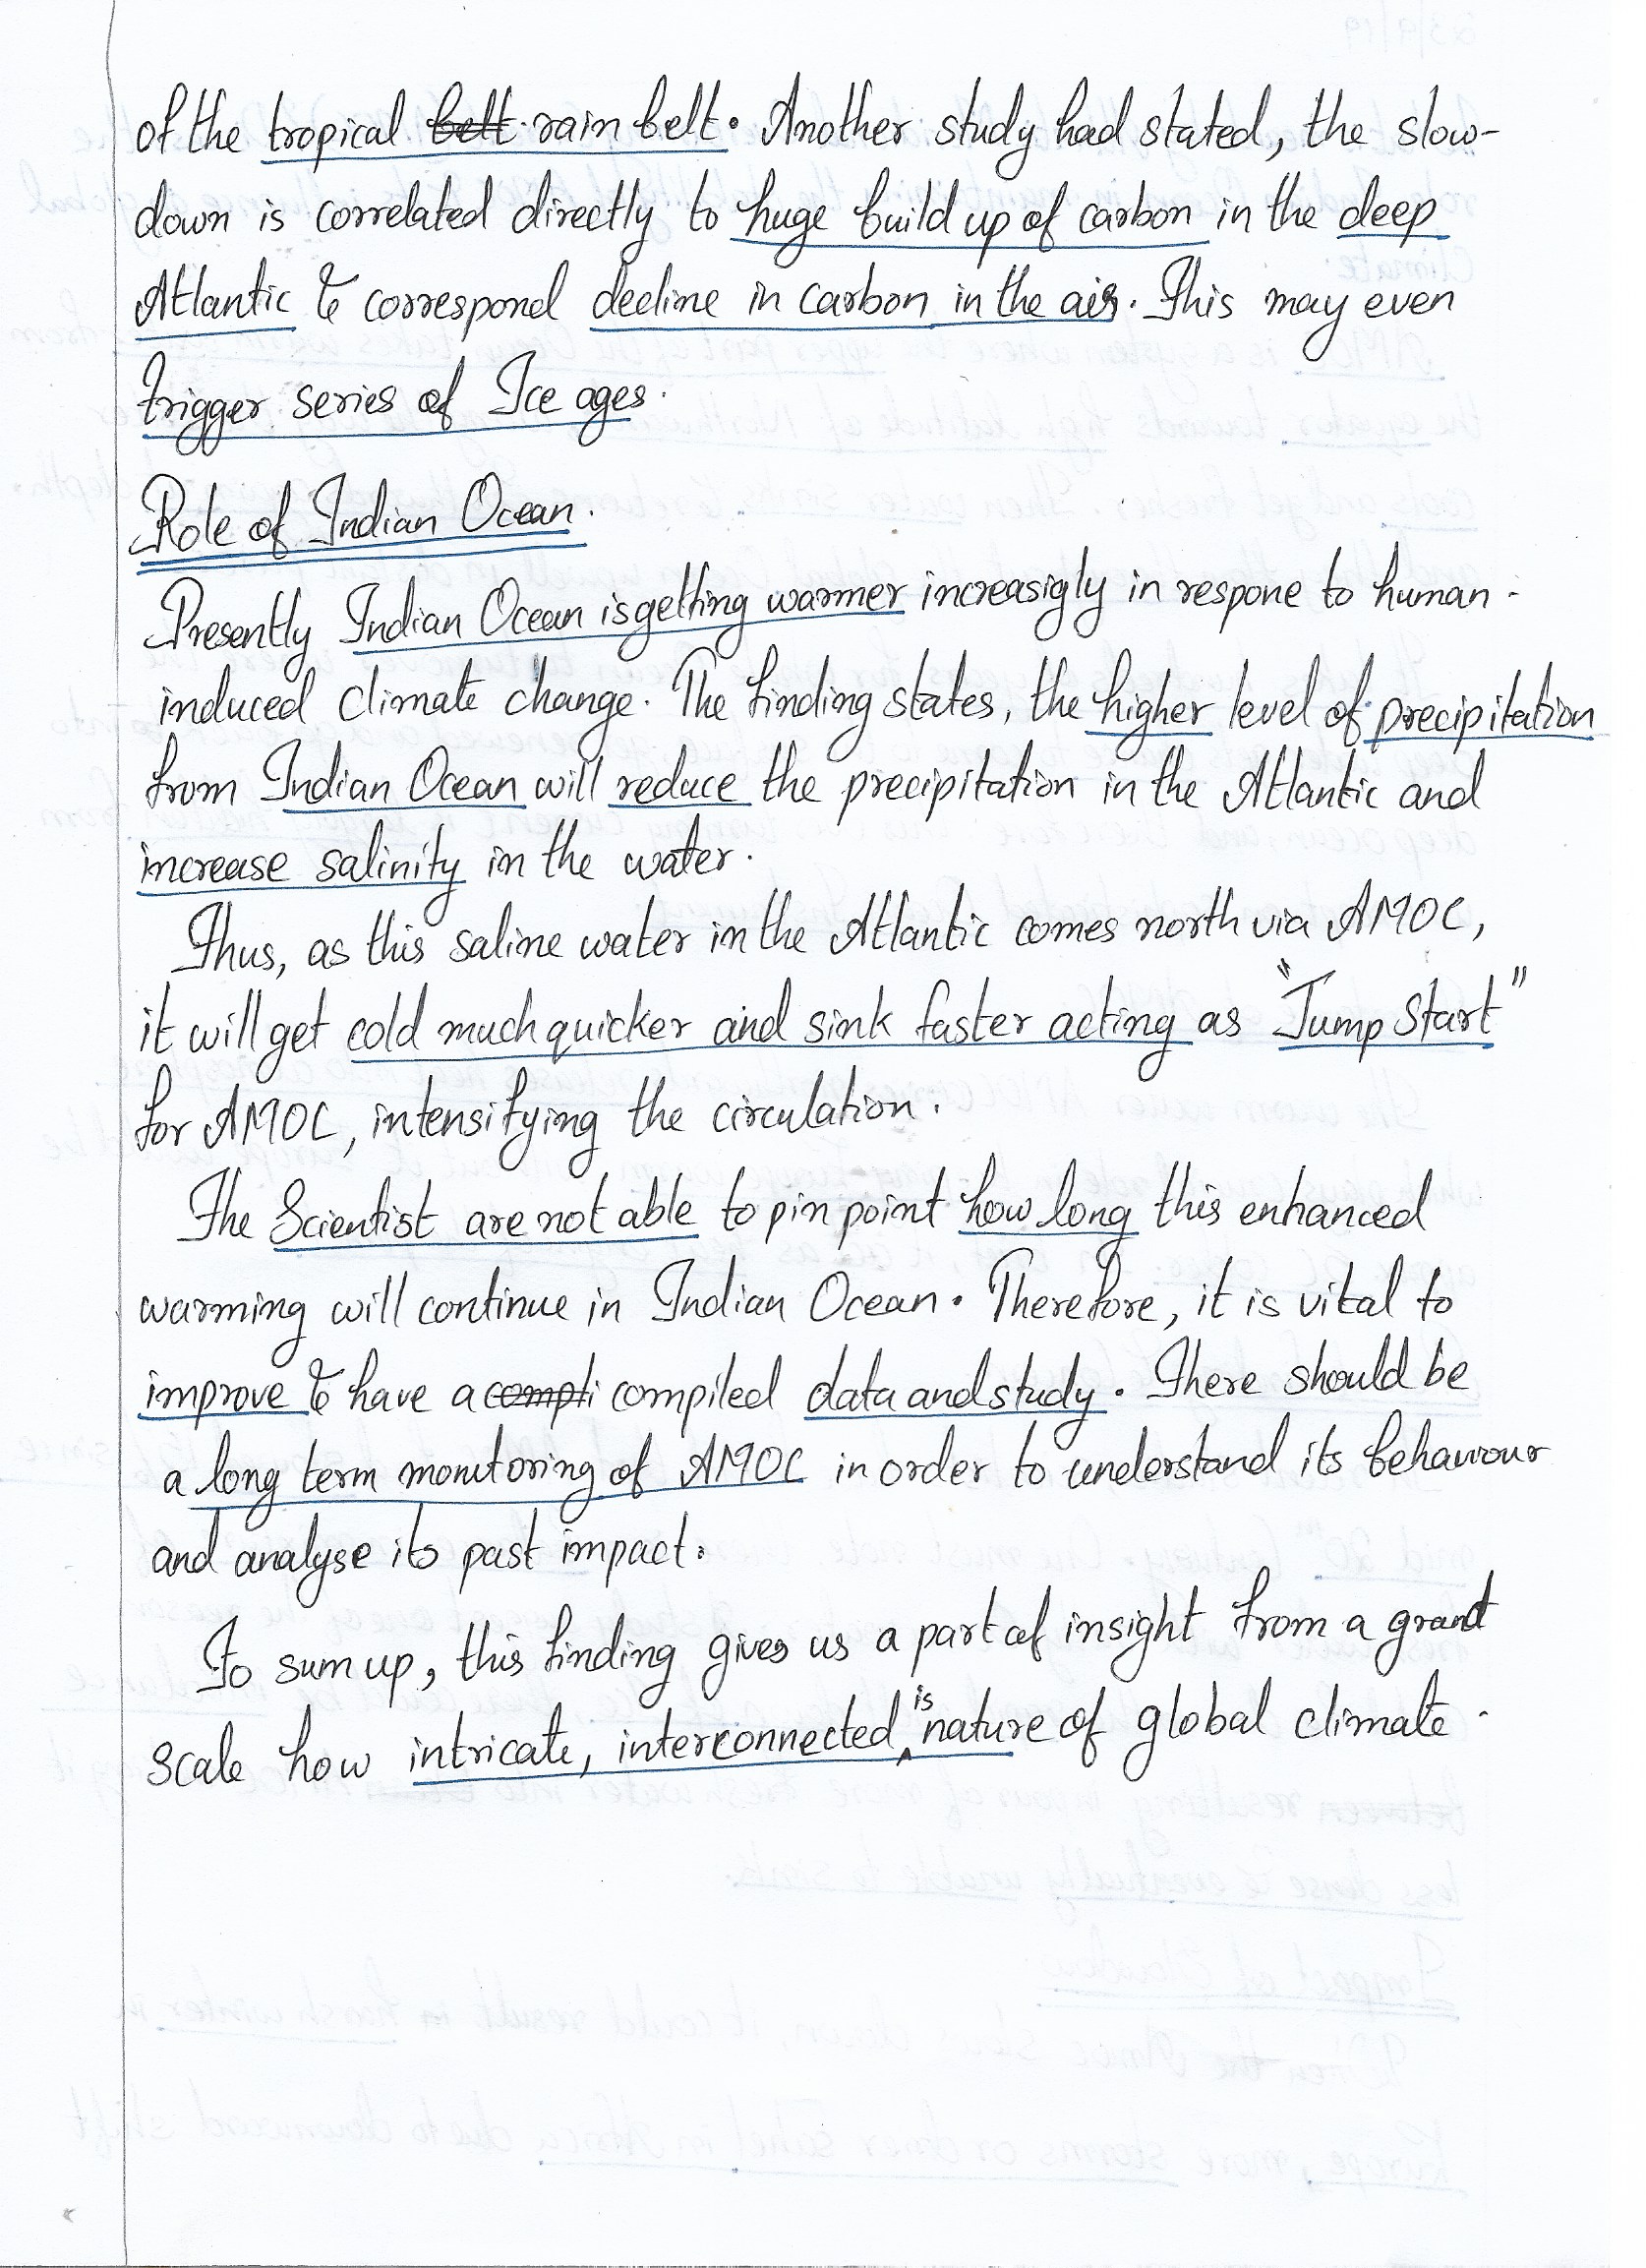 of the tropical belt rain belt. Another study had stated, the slow-
down is correlated directly to huge build up of carbon in the deep
Atlantic & correspond decline in carbon in the air. This may even
trigger series of Ice ages.
Role of Indian Ocean.
Presently Indian Ocean is getting warmer increasigly in respone to human-
induced climate change. The finding states, the higher level of precipitation
from Indian Ocean will reduce the precipitation in the Atlantic and
increase salinity in the water.
Thus, as this saline water in the Atlantic comes north via AMOC,
it will get cold much quicker and sink faster acting as "Jump Start"
for AMOC, intensifying the circulation.
The Scientist are not able to pin point how long this enhanced
warming will continue in Indian Ocean. Therefore, it is vital to
improve & have a compli compiled data and study. There should be
a long term monitoring of AMOC in order to understand its behaviour
and analyse its past impact.
To sum up, this finding gives us a part of insight from a grand
scale how intricate, interconnected is nature of global climate.